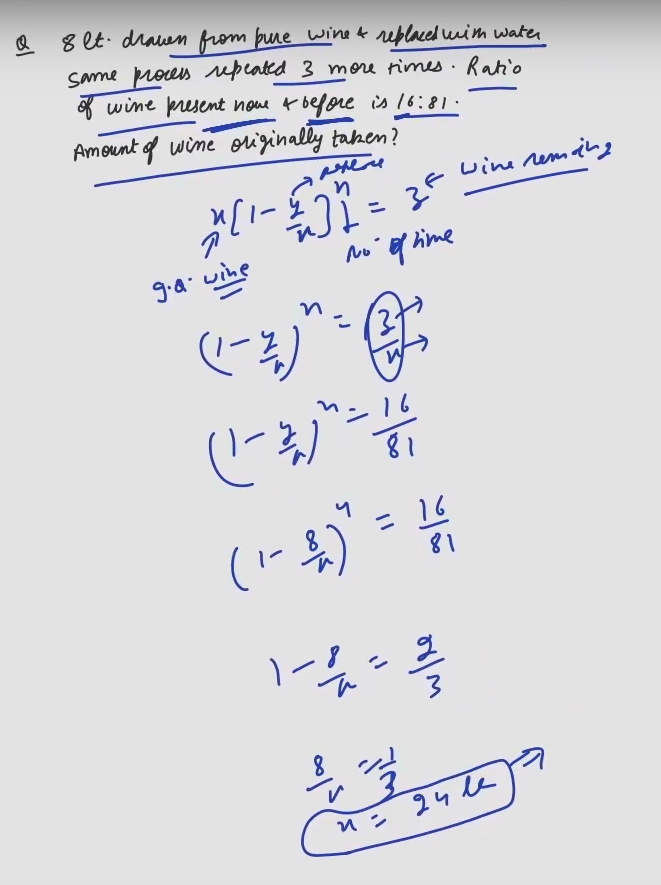 Q 8 lt. drawn from pure wine & replaced with water
same process repeated 3 more times. Ratio
of wine present now & before is 16:81.
Amount of wine originally taken?
replace
x[1-y/x]^n = z ← wine remaing
No. of time
wine
(1-y/x)^n = z/x
(1-y/x)^n = 16/81
(1-8/x)^4 = 16/81
1-8/x = 2/3
8/x = 1/3
x = 24 lt